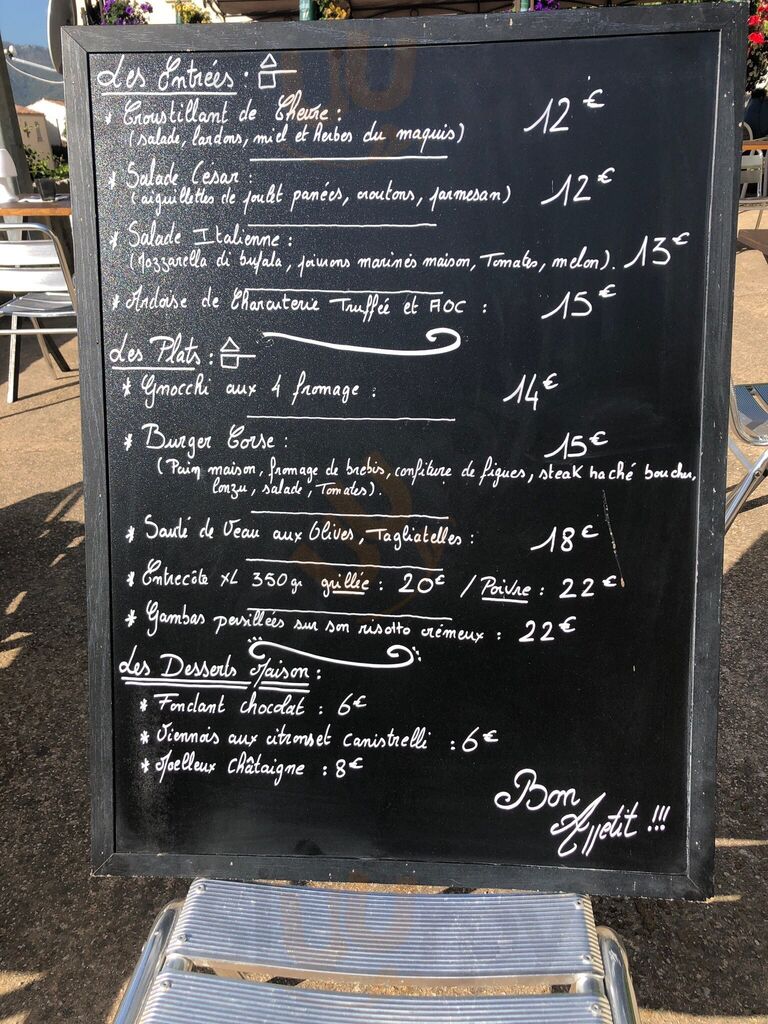 Les Entrées.
* Croustillant de Chevre : 12€
(salade, lardons, miel et herbes du maquis)
* Salade César : 12€
(aiguillettes de poulet panées, croutons, parmesan)
* Salade Italienne : 13€
(Mozzarella di bufala, poivrons marinés maison, Tomates, melon).
* Ardoise de Charcuterie Truffée et AOC : 15€
Les Plats :
* Gnocchi aux 4 fromage : 14€
* Burger Corse : 15€
(Pain maison, fromage de brebis, confiture de figues, steak haché boucher,
lonzu, salade, Tomates).
* Sauté de Veau aux Olives, Tagliatelles : 18€
* Entrecôte XL 350gr grillée : 20€ / Poivre : 22€
* Gambas persillées sur son risotto crémeux : 22€
Les Desserts Maison :
* Fondant chocolat : 6€
* Viennois aux citrons et canistrelli : 6€
* Moelleux châtaigne : 8€
Bon
Appetit !!!